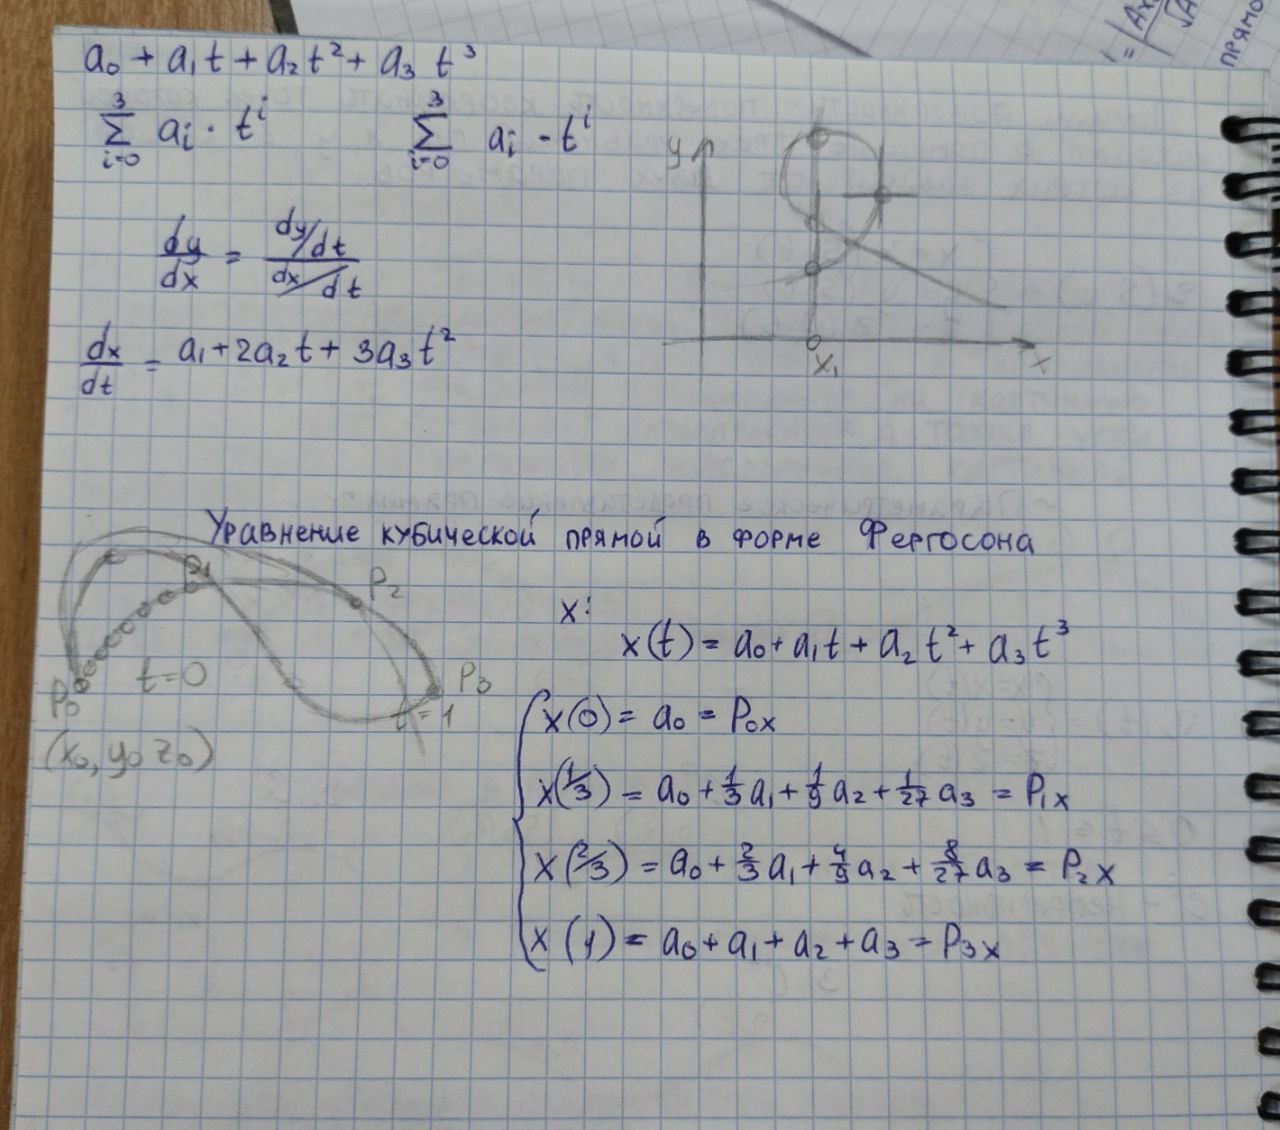 a₀ + a₁t + a₂t² + a₃ t³
3 Σ i=0 aᵢ · tⁱ 3 Σ i=0 aᵢ - tⁱ
dy/dx = (dy/dt)/(dx/dt)
dx/dt = a₁ + 2a₂t + 3a₃t²
y
x₁
x
Уравнение кубической прямой в форме Фергосона
P₁
P₂
P₃
P₀
t=0
t=1
(x₀, y₀ z₀)
x:
x(t) = a₀ + a₁t + a₂t² + a₃t³
x(0) = a₀ = P₀x
x(1/3) = a₀ + 1/3 a₁ + 1/9 a₂ + 1/27 a₃ = P₁x
x(2/3) = a₀ + 2/3 a₁ + 4/9 a₂ + 8/27 a₃ = P₂x
x(1) = a₀ + a₁ + a₂ + a₃ = P₃x